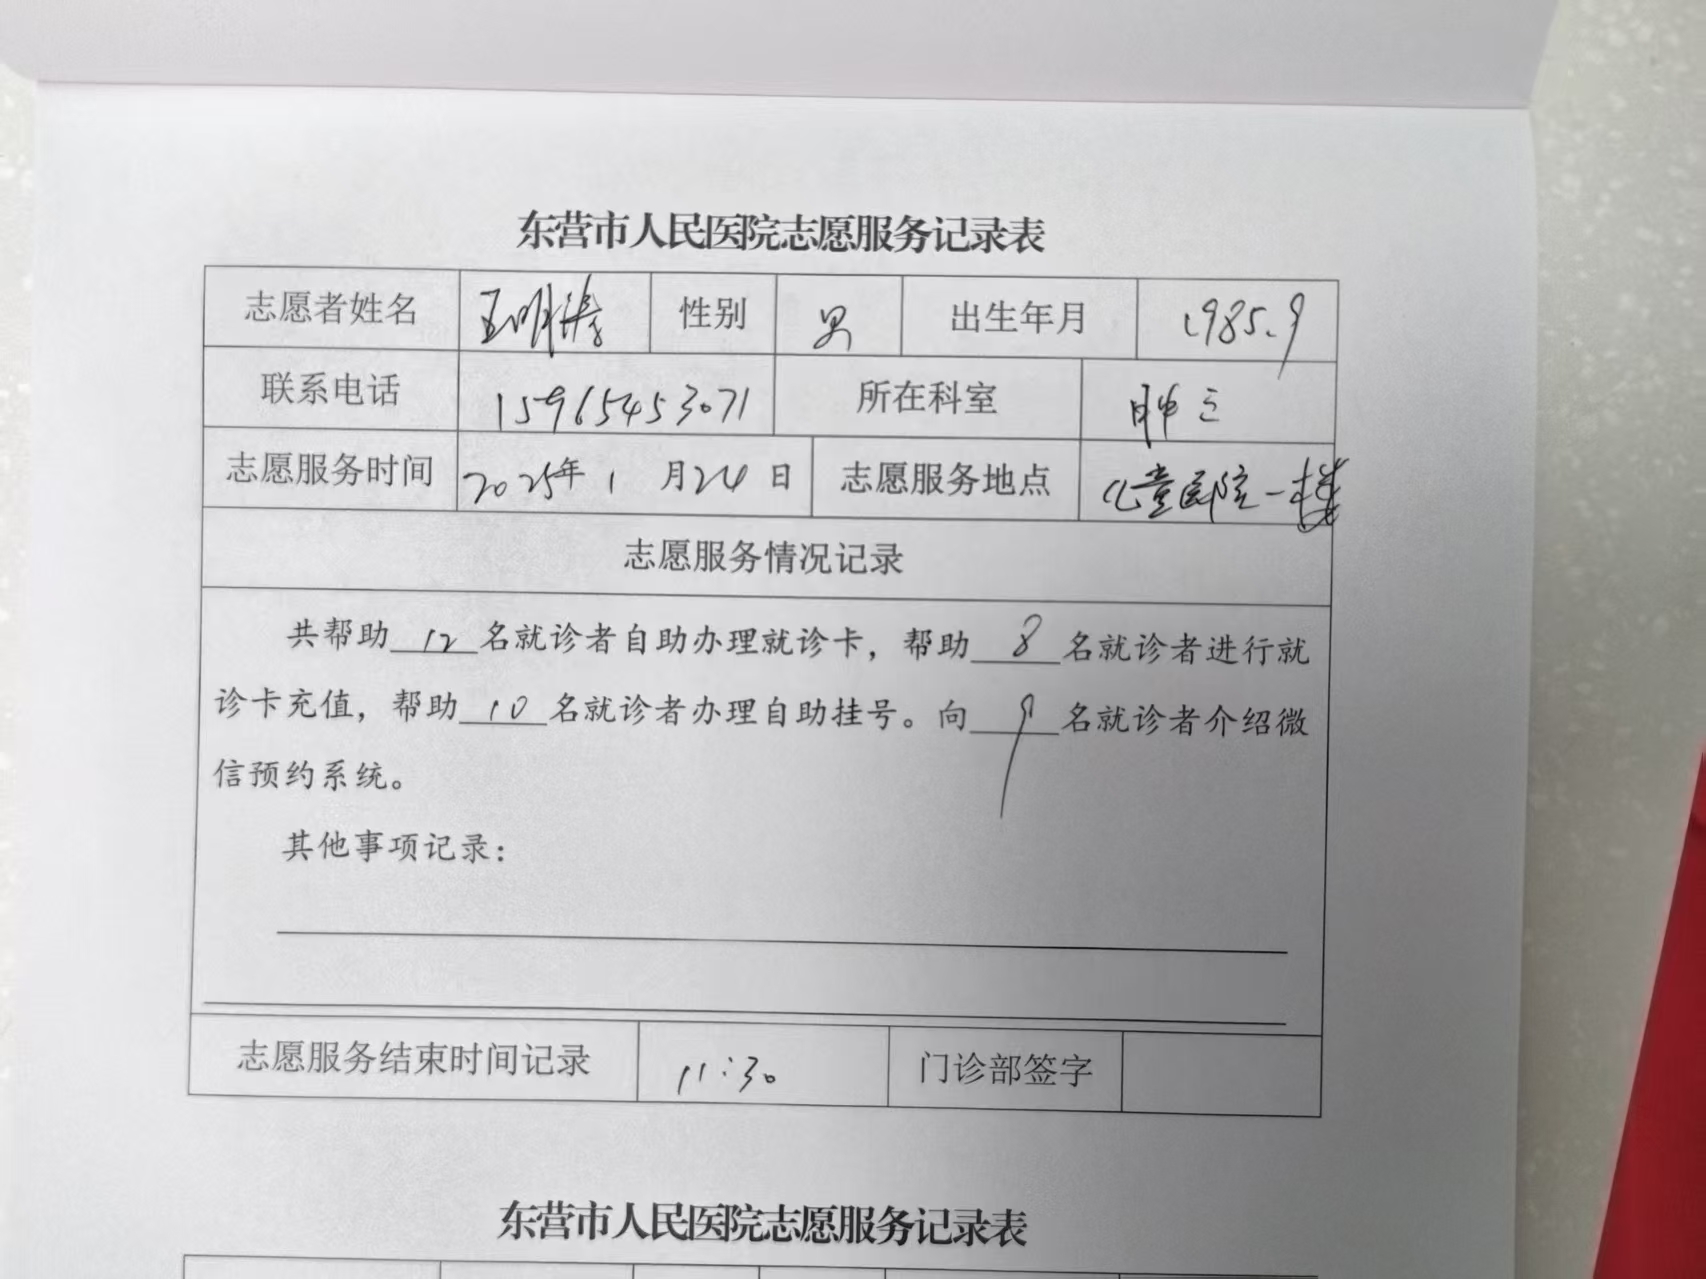 东营市人民医院志愿服务记录表
志愿者姓名 王明涛 性别 男 出生年月 1985.9
联系电话 15965453071 所在科室 肿三
志愿服务时间 2025年1月24日 志愿服务地点 儿童医院一楼
志愿服务情况记录
共帮助12名就诊者自助办理就诊卡，帮助8名就诊者进行就
诊卡充值，帮助10名就诊者办理自助挂号。向9名就诊者介绍微
信预约系统。
其他事项记录：
志愿服务结束时间记录 11:30 门诊部签字
东营市人民医院志愿服务记录表